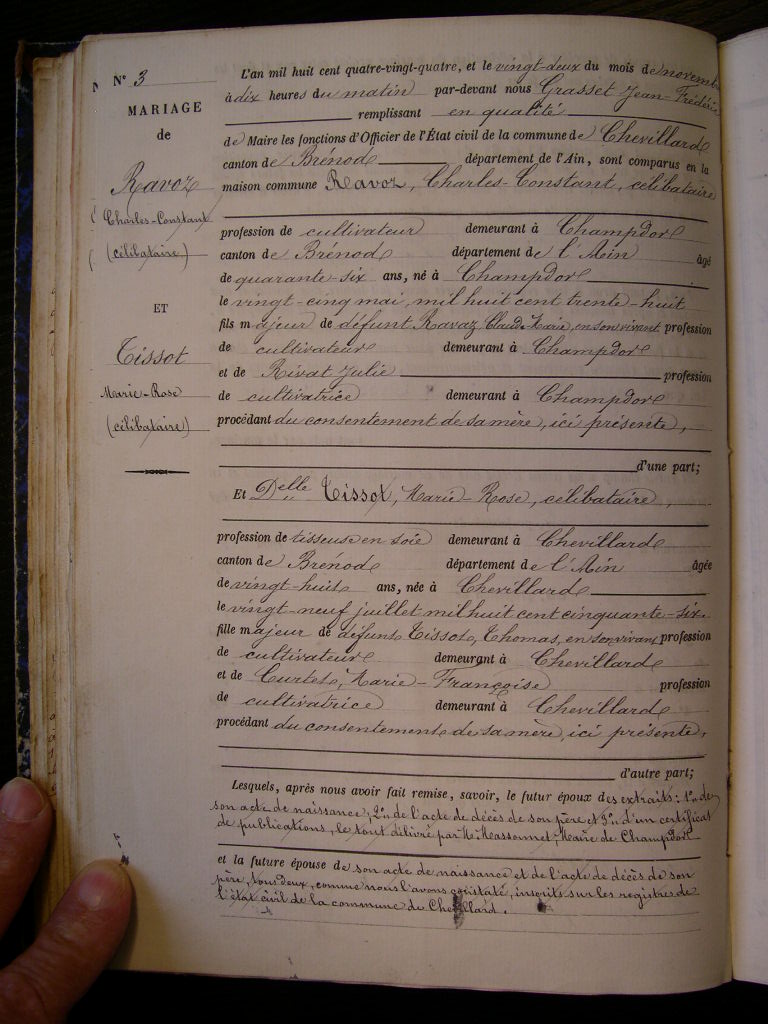 N° 3
MARIAGE
de
Ravoz
Charles-Constant
(célibataire)
ET
Tissot
Marie-Rose
(célibataire)
L'an mil huit cent quatre-vingt-quatre, et le vingt-deux du mois de novemb
à dix heures du matin par-devant nous Grasset Jean-Frédéric
remplissant en qualité
de Maire les fonctions d'Officier de l'État civil de la commune de Chevillard
canton de Brénod département de l'Ain, sont comparus en la
maison commune Ravoz, Charles-Constant, célibataire
profession de cultivateur demeurant à Champdor
canton de Brénod département de l'Ain âgé
de quarante-six ans, né à Champdor
le vingt-cinq mai, mil huit cent trente-huit
fils majeur de défunt Ravaz Claude Marie, en son vivant profession
de cultivateur demeurant à Champdor
et de Rivat Julie profession
de cultivatrice demeurant à Champdor
procédant du consentement de sa mère, ici présente,
d'une part;
Et Delle Tissot, Marie-Rose, célibataire,
profession de tisseuse en soie demeurant à Chevillard
canton de Brénod département de l'Ain âgée
de vingt-huit ans, née à Chevillard
le vingt-neuf juillet mil huit cent cinquante-six.
fille majeur de défunt Tissot, Thomas, en son vivant profession
de cultivateur demeurant à Chevillard
et de Curtet, Marie-Françoise profession
de cultivatrice demeurant à Chevillard
procédant du consentement de sa mère, ici présente,
d'autre part;
Lesquels, après nous avoir fait remise, savoir, le futur époux des extraits: 1° de
son acte de naissance, 2° de l'acte de décès de son père et 3° d'un certificat
de publications, le tout délivré par Mr Massonnet, Maire de Champdor
et la future épouse de son acte de naissance et de l'acte de décès de son
père, tous deux, comme nous l'avons constaté, inscrits sur les registres de
l'état civil de la commune de Chevillard.